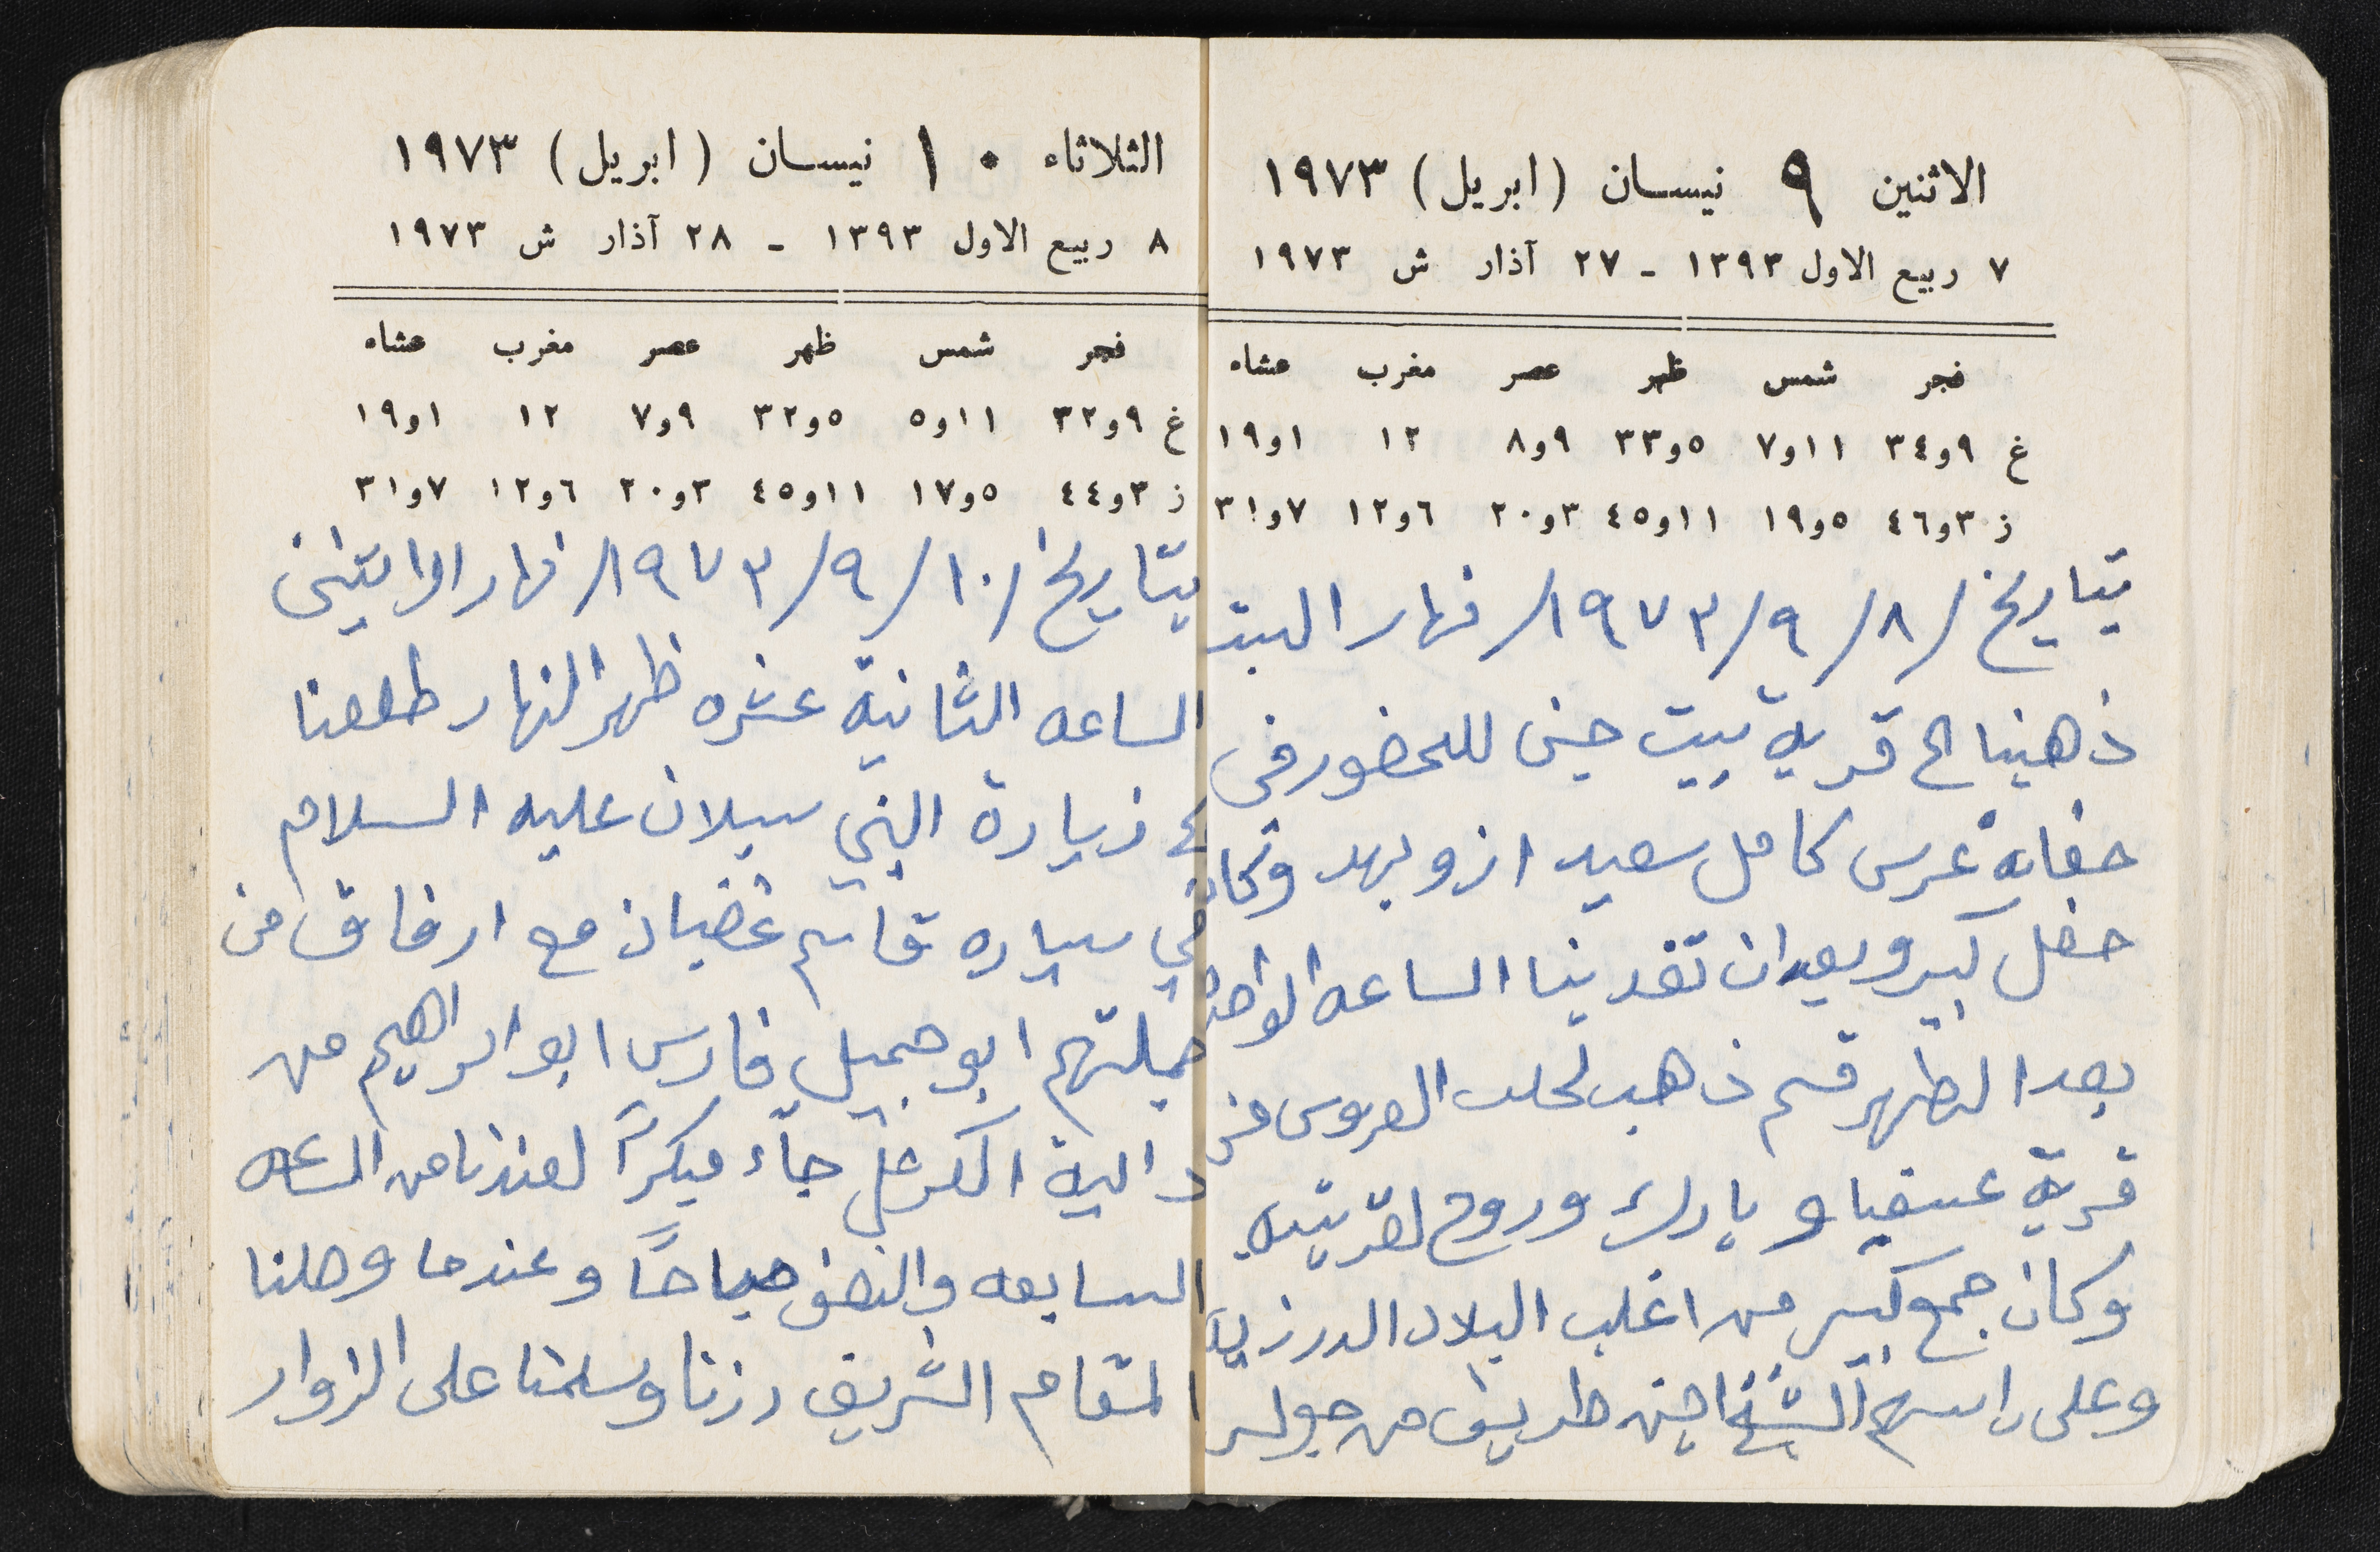 الاثنين ٩ نيسان (ابريل) ١٩٧٣
٧ ربيع الاول ١٣٩٣ - ٢٧ آذار ش ١٩٧٣
فجر شمس ظهر عصر مغرب عشاء
غ ٩و٣٤ ١١و٧ ٥و٣٣ ٩و٨ ١٢ ١و١٩
ز ٣و٤٦ ٥و١٩ ١١و٤٥ ٣و٢٠ ٦و١٢ ٧و٣١
بتاريخ /٨/٩/١٩٧٣/ نهار السبت
ذهبنا الى قرية بيت جن للحضور في
حفلة عرس كامل سعيد وكان
حفل كبير وبعد ان تغدينا الساعه الواحده
بعد الظهر قسم ذهب لجلب العروس من
قرية عسفيا و بارك وروح لقريته
وكان جمع كبير من اغلب البلاد الدرزية
وعلى راسهم الشيخ امين طريف من جولس
الثلاثاء ١٠ نيسان (ابريل) ١٩٧٣
٨ ربيع الاول ١٣٩٣ - ٢٨ آذار ش ١٩٧٣
فجر شمس ظهر عصر مغرب عشاء
غ ٩و٣٢ ١١و٥ ٥و٣٢ ٩و٧ ١٢ ١و١٩
ز ٣و٤٤ ٥و١٧ ١١و٤٥ ٣و٢٠ ٦و١٢ ٧و٣١
بتاريخ /١٠/٩/١٩٧٣/ نهار الاثنين
الساعه الثانية عشره ظهر النهار طلعنا
الى زيارة النبي سبلان عليه السلام
في سياره قاسم غضبان مع ارفاق من
جملتهم ابو جميل فارس ابو ابراهيم من
دالية الكرمل جاء مبكراً لعندنا من الساعه
السابعه والنصف صباحاً وعندما وصلنا
المقام الشريف زرنا وسلمنا على الزوار